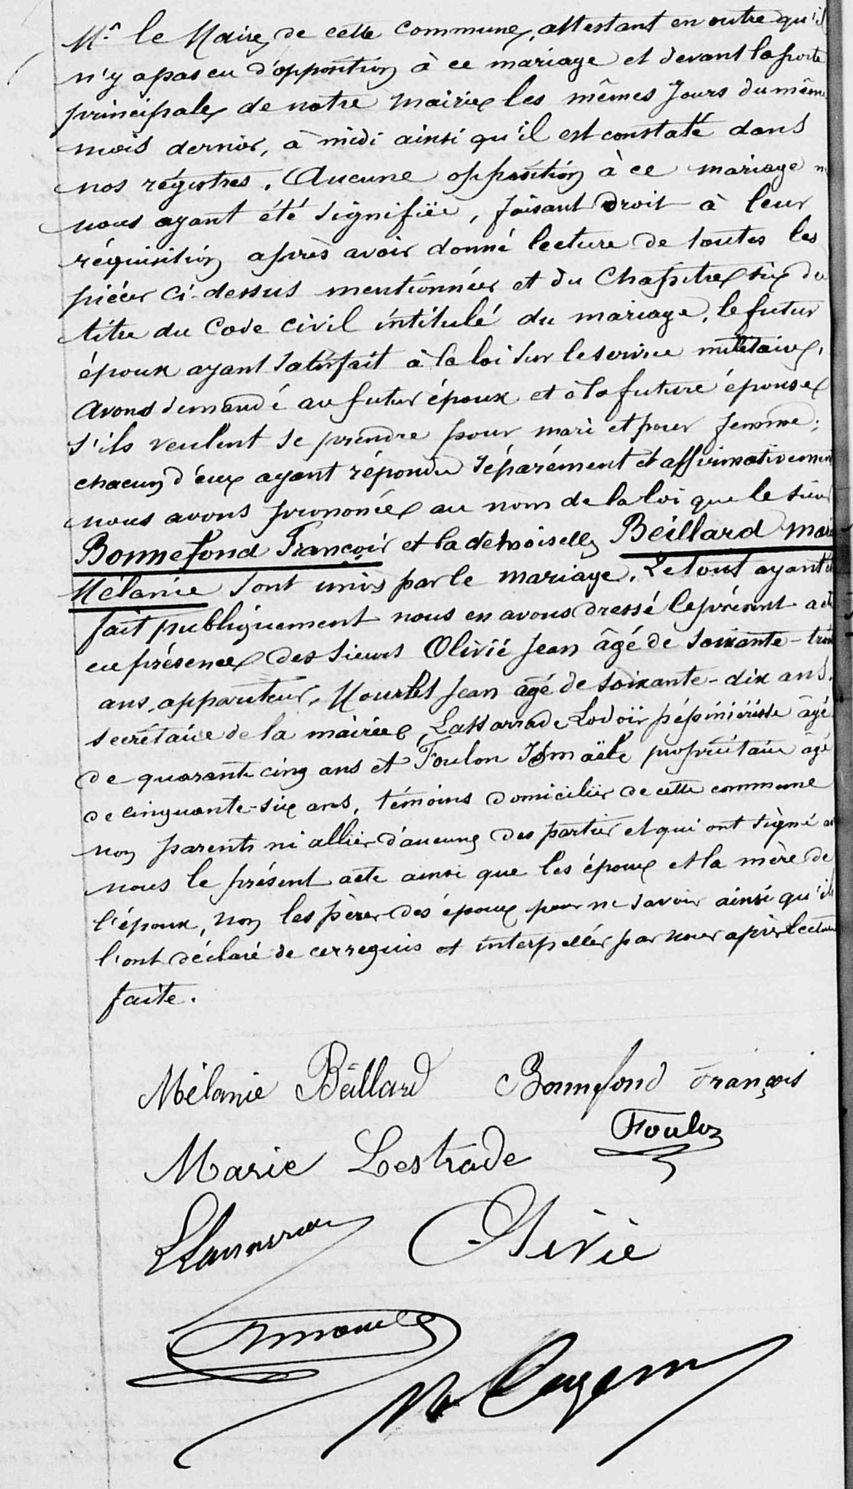 Mr le Maire de cette commune, attestant en outre qu'il
n'y a pas eu d'opposition à ce mariage et devant la porte
principale de notre mairie les mêmes jours du même
mois dernier, à midi ainsi qu'il est constaté dans
nos régistres. Aucune opposition à ce mariage n
nous ayant été signifiée, faisant droit à leur
réquisition après avoir donné lecture de toutes les
pièces ci-dessus mentionnées et du Chapitre six du
titre du Code civil intitulé du mariage, le futur
époux ayant satisfait à la loi sur le service militaire,
avons demandé au futur époux et à la future épouse
s'ils veulent se prendre pour mari et pour femme;
chacun d'eux ayant répondu séparément et affirmativement
nous avons prononcé au nom de la loi que le sieur
Bonnefond François et la demoiselle Beillard Marie
Mélanie sont unis par le mariage. Le tout ayant été
fait publiquement nous en avons dressé le présent acte
en présence des sieurs Olivié Jean âgé de soixante-trois
ans, appariteur, Nourlet Jean âgé de soixante-dix ans,
secrétaire de la mairie, Lassarrade Lodoïx pépiniériste âgé
de quarante cinq ans et Foulon Ismaële propriétaire âgé
de cinquante-six ans, témoins domiciliés de cette commune
non parents ni alliés d'aucune des parties et qui ont signé avec
nous le présent acte ainsi que les époux et la mère de
l'époux, non les pères des époux pour ne savoir ainsi qu'ils
l'ont déclaré de ce requis et interpellés par nous après lecture
faite.
Mélanie Béillard Bonnefond François
Marie Lestrade Foulon
Olivié